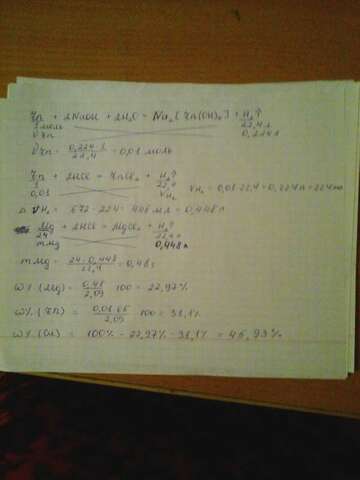 Zn + 2NaOH + 2H₂O = Na₂[Zn(OH)₄] + H₂↑
1 моль 22,4 л
νZn 0,224 л
νZn = 0,224·1 / 22,4 = 0,01 моль
Zn + 2HCl = ZnCl₂ + H₂↑
1 22,4
0,01 VH₂ VH₂ = 0,01·22,4 = 0,224 л = 224 мл
VH₂ = 672 - 224 = 448 мл = 0,448 л
Mg + 2HCl = MgCl₂ + H₂↑
24 22,4 л
m Mg 0,448 л
m Mg = 24·0,448 / 22,4 = 0,48 г
ω% (Mg) = 0,48 / 2,09 · 100 = 22,97%
ω% (Zn) = 0,01·65 / 2,09 · 100 = 31,1%
ω% (Cu) = 100% - 22,97% - 31,1% = 45,93%